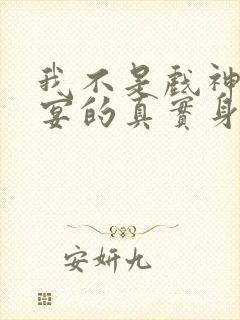 我不是戲神
宴的真實身
安妍九